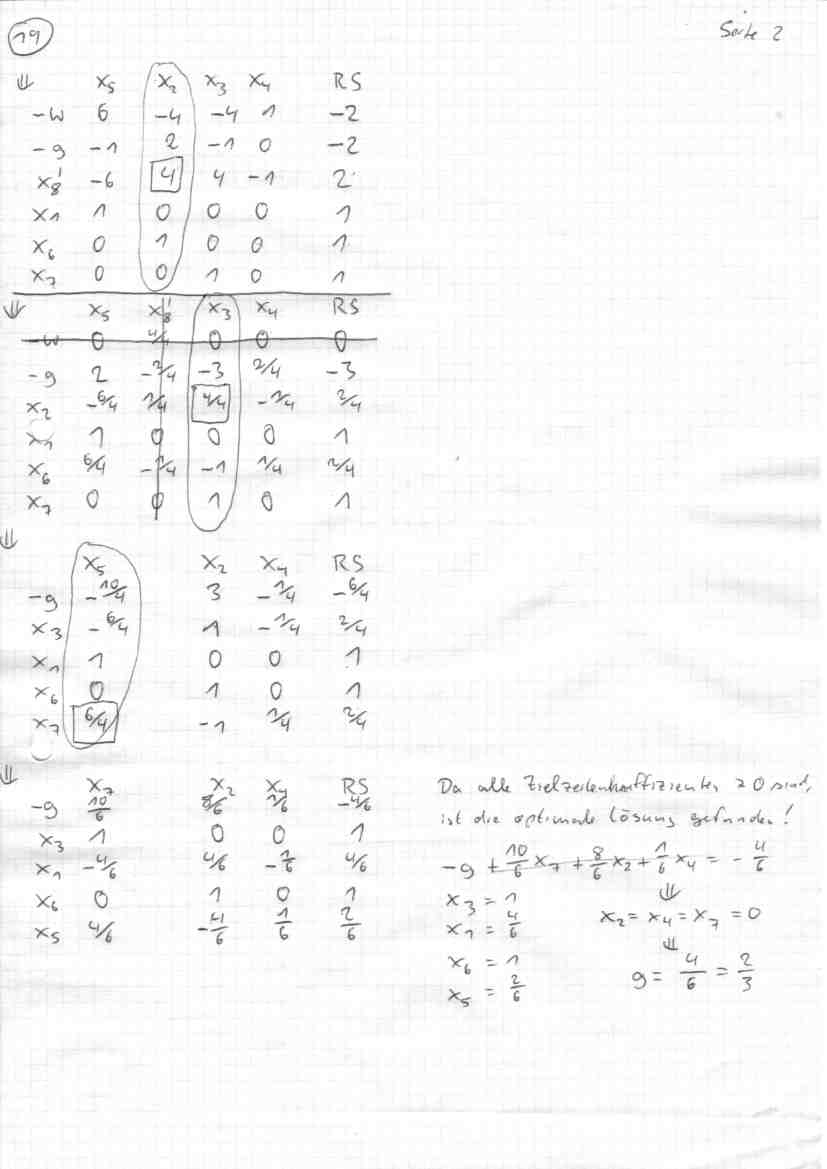 19
Seite 2
⇓ x₅ x₂ x₃ x₄ RS
-w 6 -4 -4 1 -2
-g -1 2 -1 0 -2
x₈' -6 4 4 -1 2
x₁ 1 0 0 0 1
x₆ 0 1 0 0 1
x₇ 0 0 1 0 1
⇓ x₅ x₈' x₃ x₄ RS
-w 0 4/4 0 0 0
-g 2 -2/4 -3 2/4 -3
x₂ -6/4 1/4 4/4 -1/4 2/4
x₁ 1 0 0 0 1
x₆ 6/4 -1/4 -1 1/4 2/4
x₇ 0 0 1 0 1
⇓
x₅ x₂ x₄ RS
-g -10/4 3 -1/4 -6/4
x₃ -6/4 1 -1/4 2/4
x₁ 1 0 0 1
x₆ 0 1 0 1
x₇ 6/4 -1 1/4 2/4
⇓ x₇ x₂ x₄ RS
-g 10/6 8/6 1/6 -4/6
x₃ 1 0 0 1
x₁ -4/6 4/6 -1/6 4/6
x₆ 0 1 0 1
x₅ 4/6 -4/6 1/6 2/6
Da alle Zielzeilenkoeffizienten ≥ 0 sind,
ist die optimale Lösung gefunden!
-g + 10/6 x₇ + 8/6 x₂ + 1/6 x₄ = -4/6
x₃ = 1 ⇓
x₁ = 4/6 x₂ = x₄ = x₇ = 0
x₆ = 1 ⇓
x₅ = 2/6 g = 4/6 = 2/3